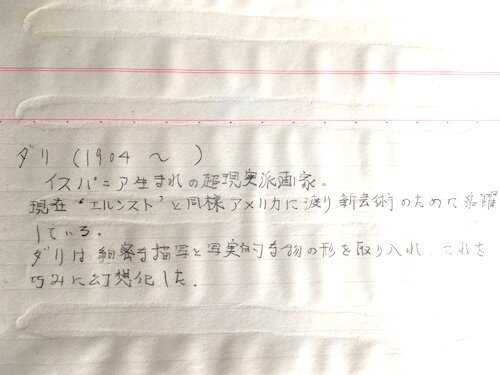 ダリ (1904 〜 )
イスパニア生まれの超現実派画家。
現在 "エルンスト" と同様アメリカに渡り新芸術のために活躍
している。
ダリは細密な描写と写実的な物の形を取り入れ、これを
巧みに幻想化した.